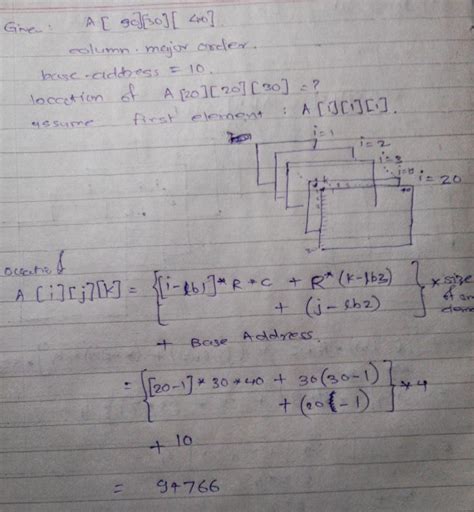 Give : A[ 90][30][ 40]
column - major order.
base-address = 10.
location of A[20][20][30] = ?
assume first element : A[1][1][1].
i=1
i=2
i=3
i=20
Location of
A[i][j][k] = {[i-lb1]* R * C + R*(k-lb3)
+ (j-lb2) } * size
of an
elem
+ Base Address.
= {[20-1]*30*40 + 30(30-1)
+ (20-1) } * 4
+ 10
= 94766